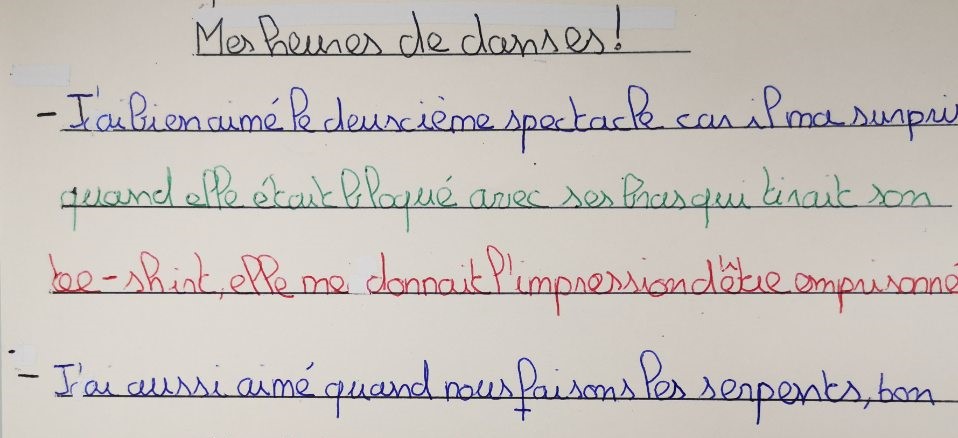 Mes heures de danses!
- J'ai bien aimé le deuxcième spectacle car il ma surpri
quand elle était bloqué avec ses bras qui tirait son
tee-shirt, elle me donnait l'impression d'être emprisonné
- J'ai aussi aimé quand nous faisons les serpents, bon